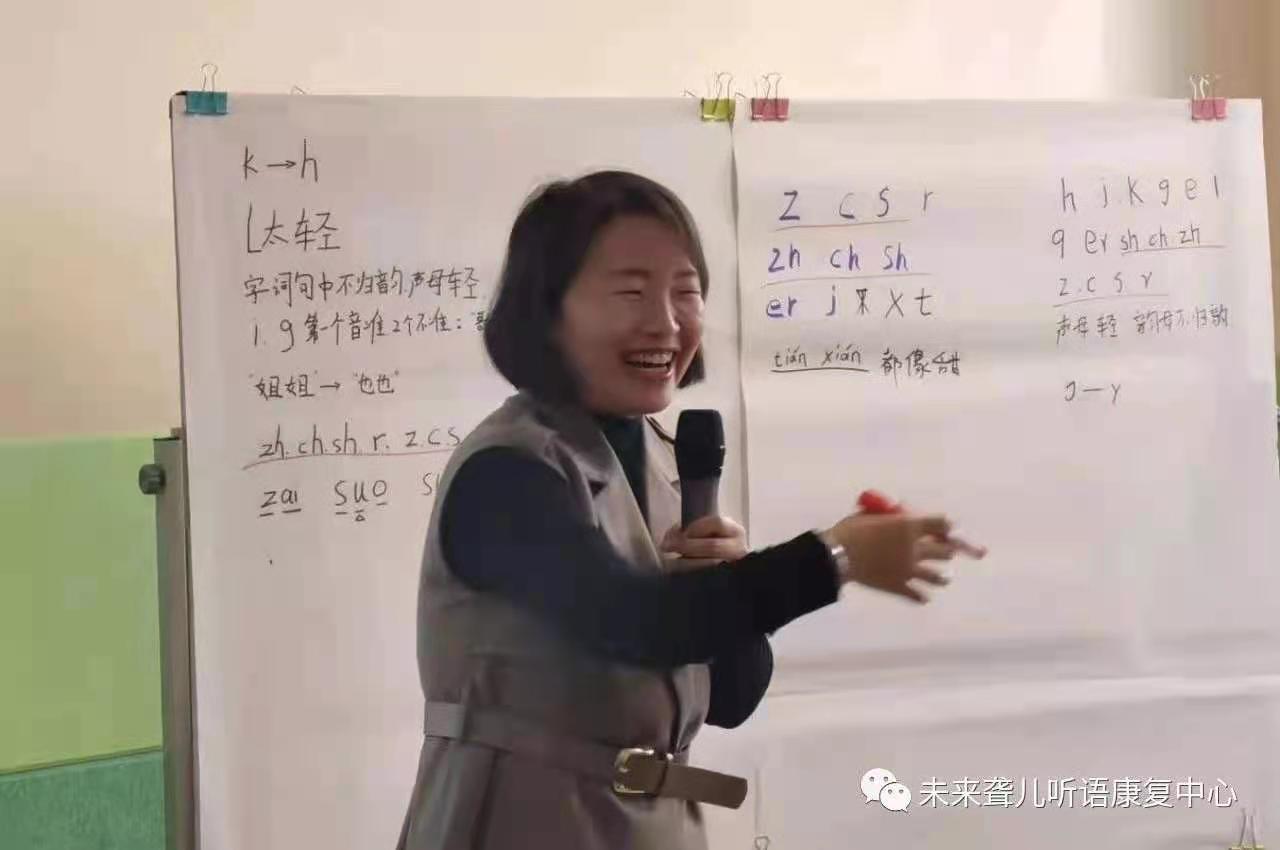 k→h
L太轻
字词句中不归韵,声母轻
1. g 第一个音准2个不准:"
"姐姐"→"也也"
zh.ch.sh.r. z.c.s
zai suo
z c s r
zh ch sh
er j x t
tián xián 都像甜
h j k g e l
q er sh.ch.zh
z.c s r
声母轻 韵母不归韵
未来聋儿听语康复中心